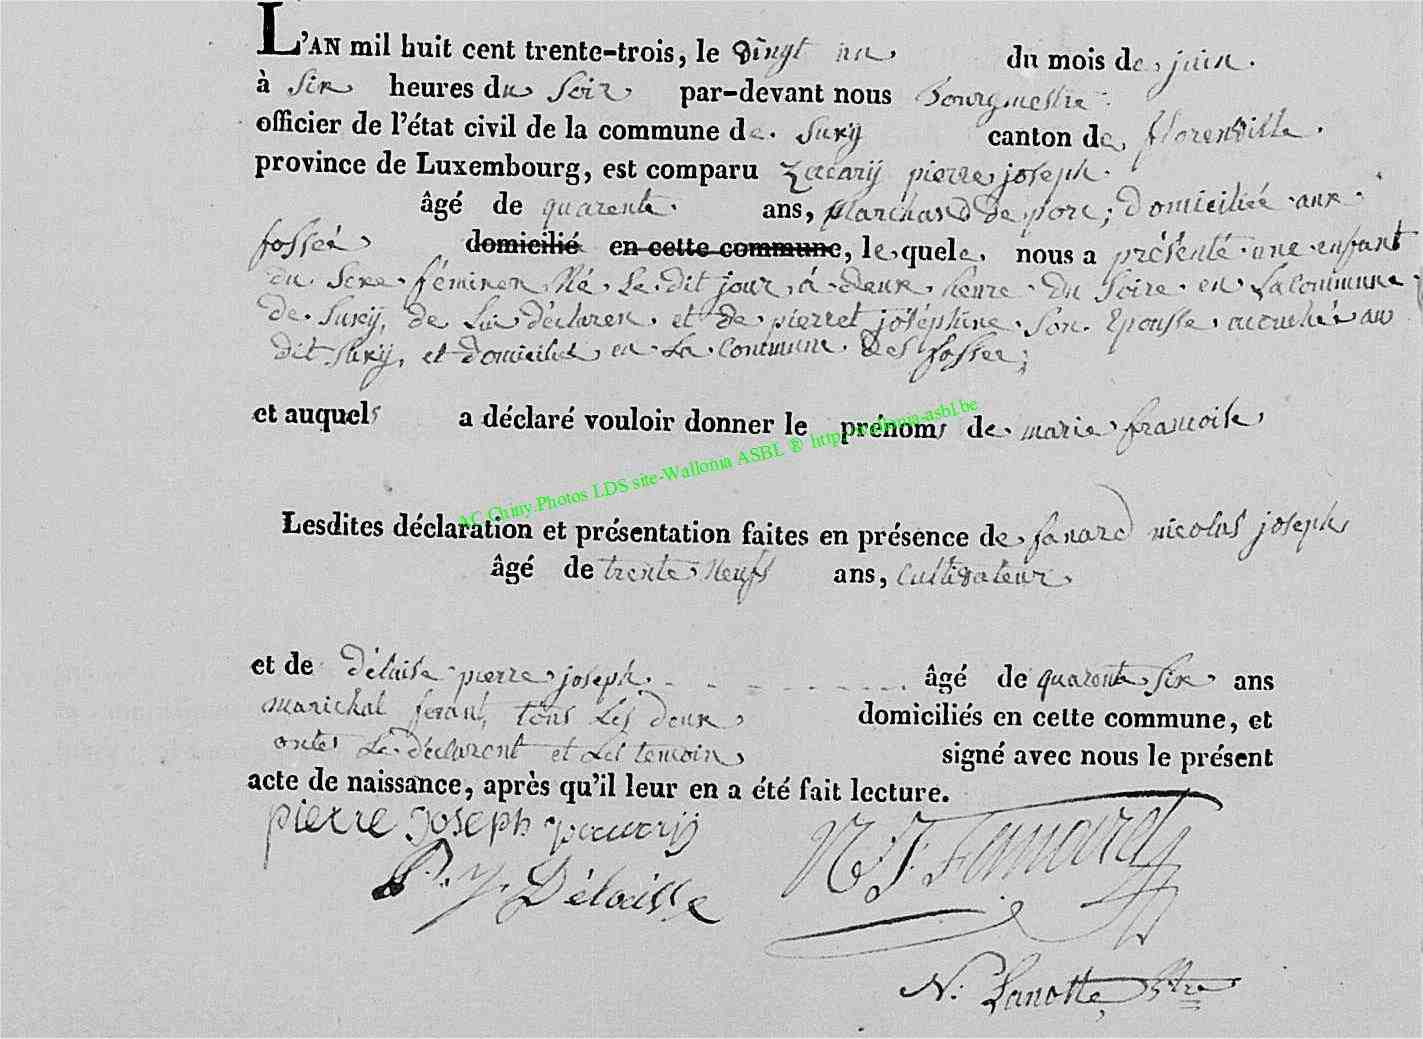 L'AN mil huit cent trente-trois, le vingt un du mois de juin.
à six heures du soir par-devant nous Bourgmestre
officier de l'état civil de la commune de Suxÿ canton de florenville.
province de Luxembourg, est comparu Zacarÿ pierre joseph.
âgé de quarente ans, Marchand de porc, domiciliée aux
fosseé domicilié en cette commune, le quel nous a présenté une enfant
du sexe féminen Né le dit jour, à deux heure du soire en La Commune
de Suxÿ, de Lui déclaren et de pierret joséphine son Epousse, accuchée au
dit Suxÿ, et domicilié en La Commune des fossée;
et auquel a déclaré vouloir donner le prénoms de marie francoise
AC Chiny Photos LDS site-Wallonia ASBL ® http://wallonia-asbl.be
Lesdites déclaration et présentation faites en présence de fanard nicolas joseph
âgé de trente Neufs ans, Cultivateur
et de Délaise pierre joseph. âgé de quarente six ans
marichal ferant, tous Les deux domiciliés en cette commune, et
ontes Le déclarent et Les temoin signé avec nous le présent
acte de naissance, après qu'il leur en a été fait lecture.
pierre joseph zacarÿ N J Fanard
P. J. Délaisse
N. Lanotte